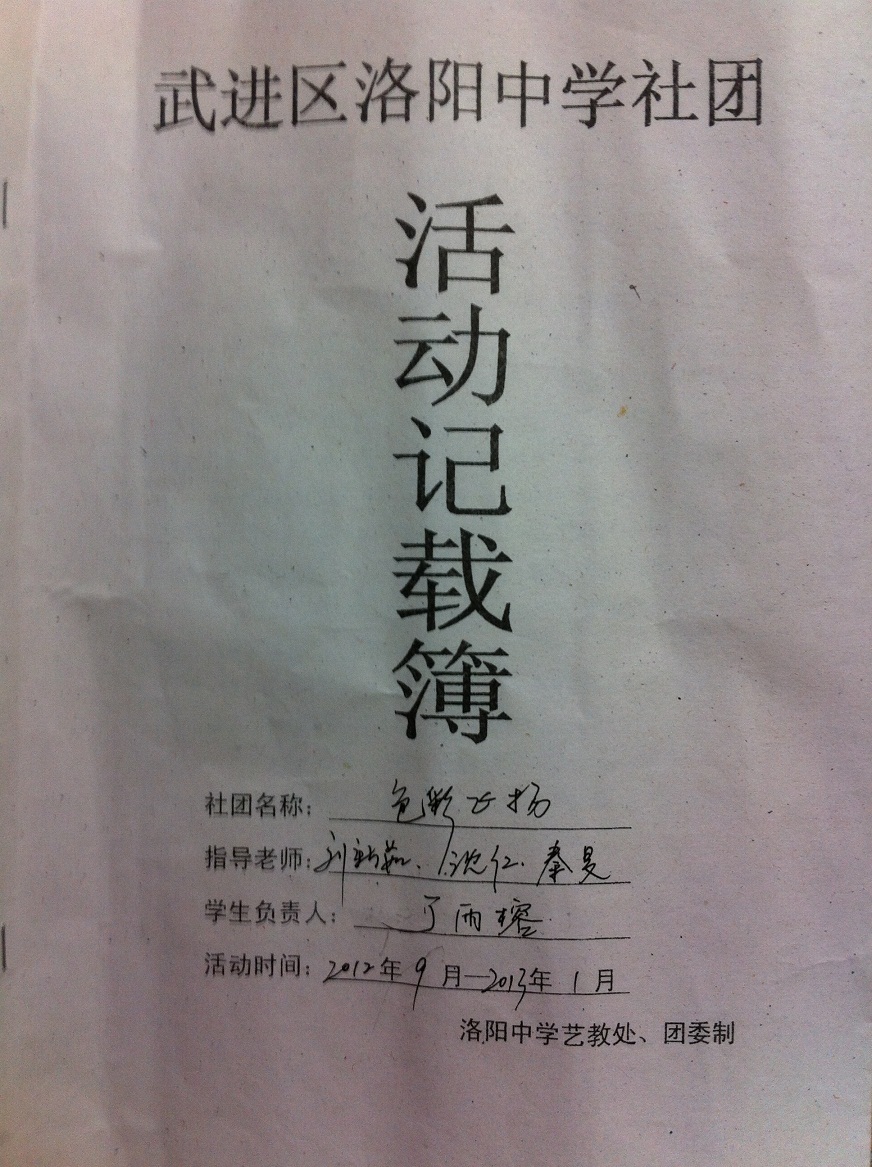 武进区洛阳中学社团
活
动
记
载
簿
社团名称：色彩飞扬
指导老师：刘新茹、沈仁、秦旻
学生负责人：丁雨榕
活动时间：2012年9月—2013年1月
洛阳中学艺教处、团委制